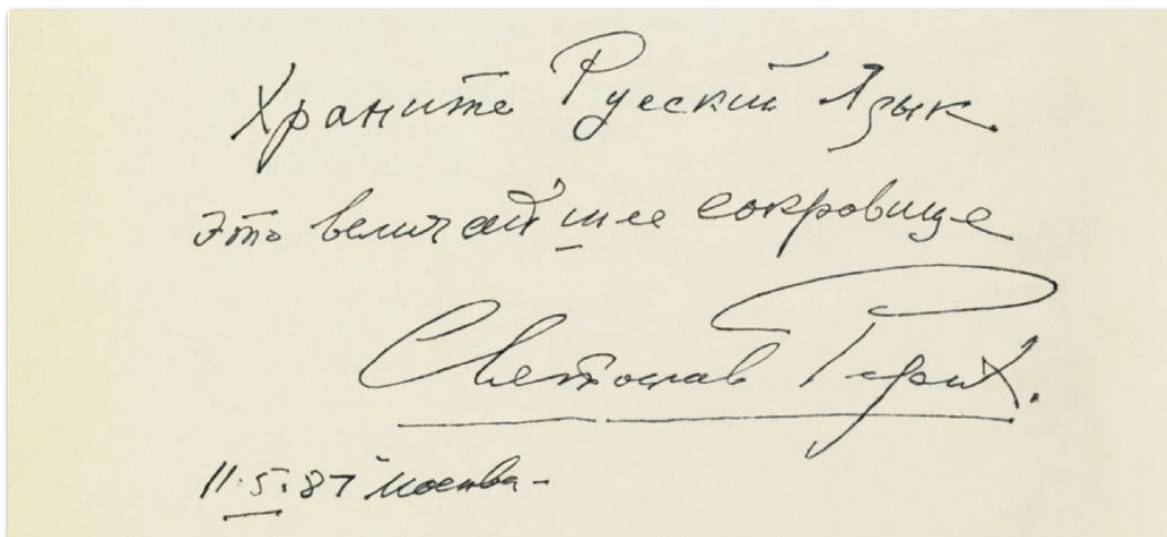 Храните Русский Язык
это величайшее сокровище
Святослав Рерих.
11.5.87 Москва-